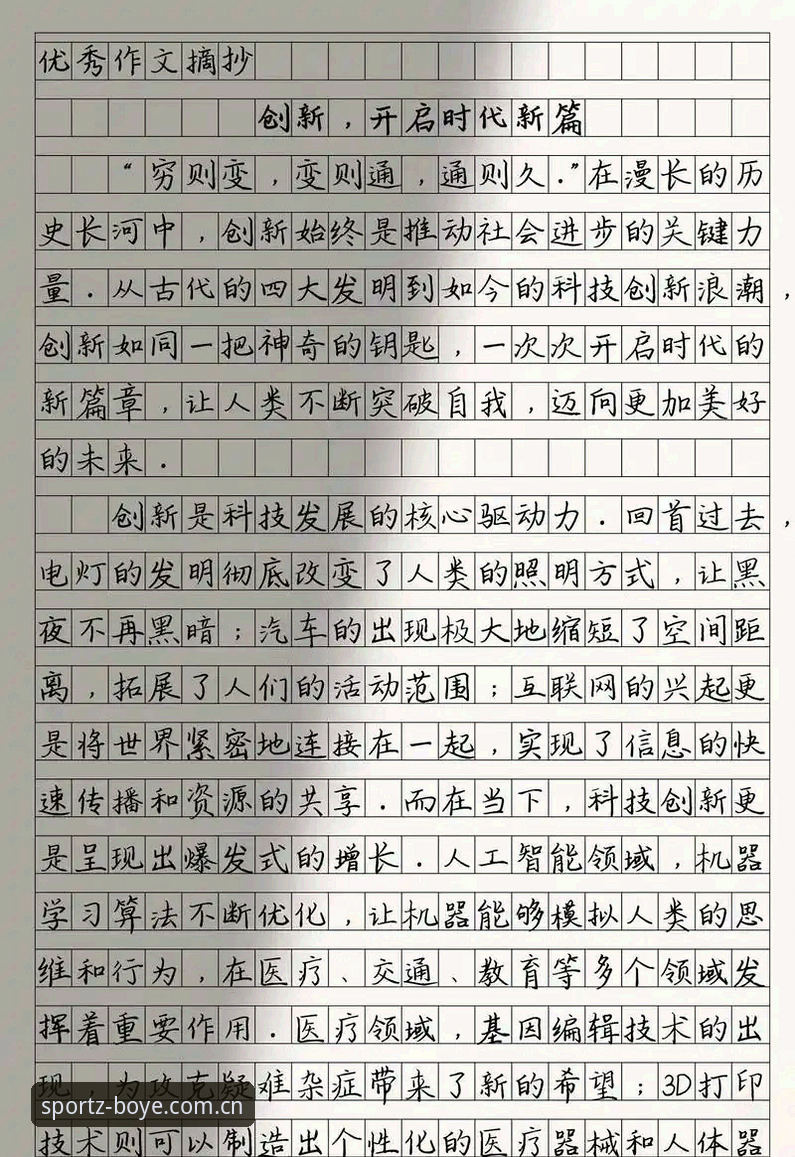 优秀作文摘抄
创新，开启时代新篇
“穷则变，变则通，通则久.”在漫长的历
史长河中，创新始终是推动社会进步的关键力
量.从古代的四大发明到如今的科技创新浪潮，
创新如同一把神奇的钥匙，一次次开启时代的
新篇章，让人类不断突破自我，迈向更加美好
的未来.
创新是科技发展的核心驱动力.回首过去，
电灯的发明彻底改变了人类的照明方式，让黑
夜不再黑暗；汽车的出现极大地缩短了空间距
离，拓展了人们的活动范围；互联网的兴起更
是将世界紧密地连接在一起，实现了信息的快
速传播和资源的共享.而在当下，科技创新更
是呈现出爆发式的增长.人工智能领域，机器
学习算法不断优化，让机器能够模拟人类的思
维和行为，在医疗、交通、教育等多个领域发
挥着重要作用.医疗领域，基因编辑技术的出
现，为攻克疑难杂症带来了新的希望；3D打印
技术则可以制造出个性化的医疗器械和人体器
sportz-boye.com.cn